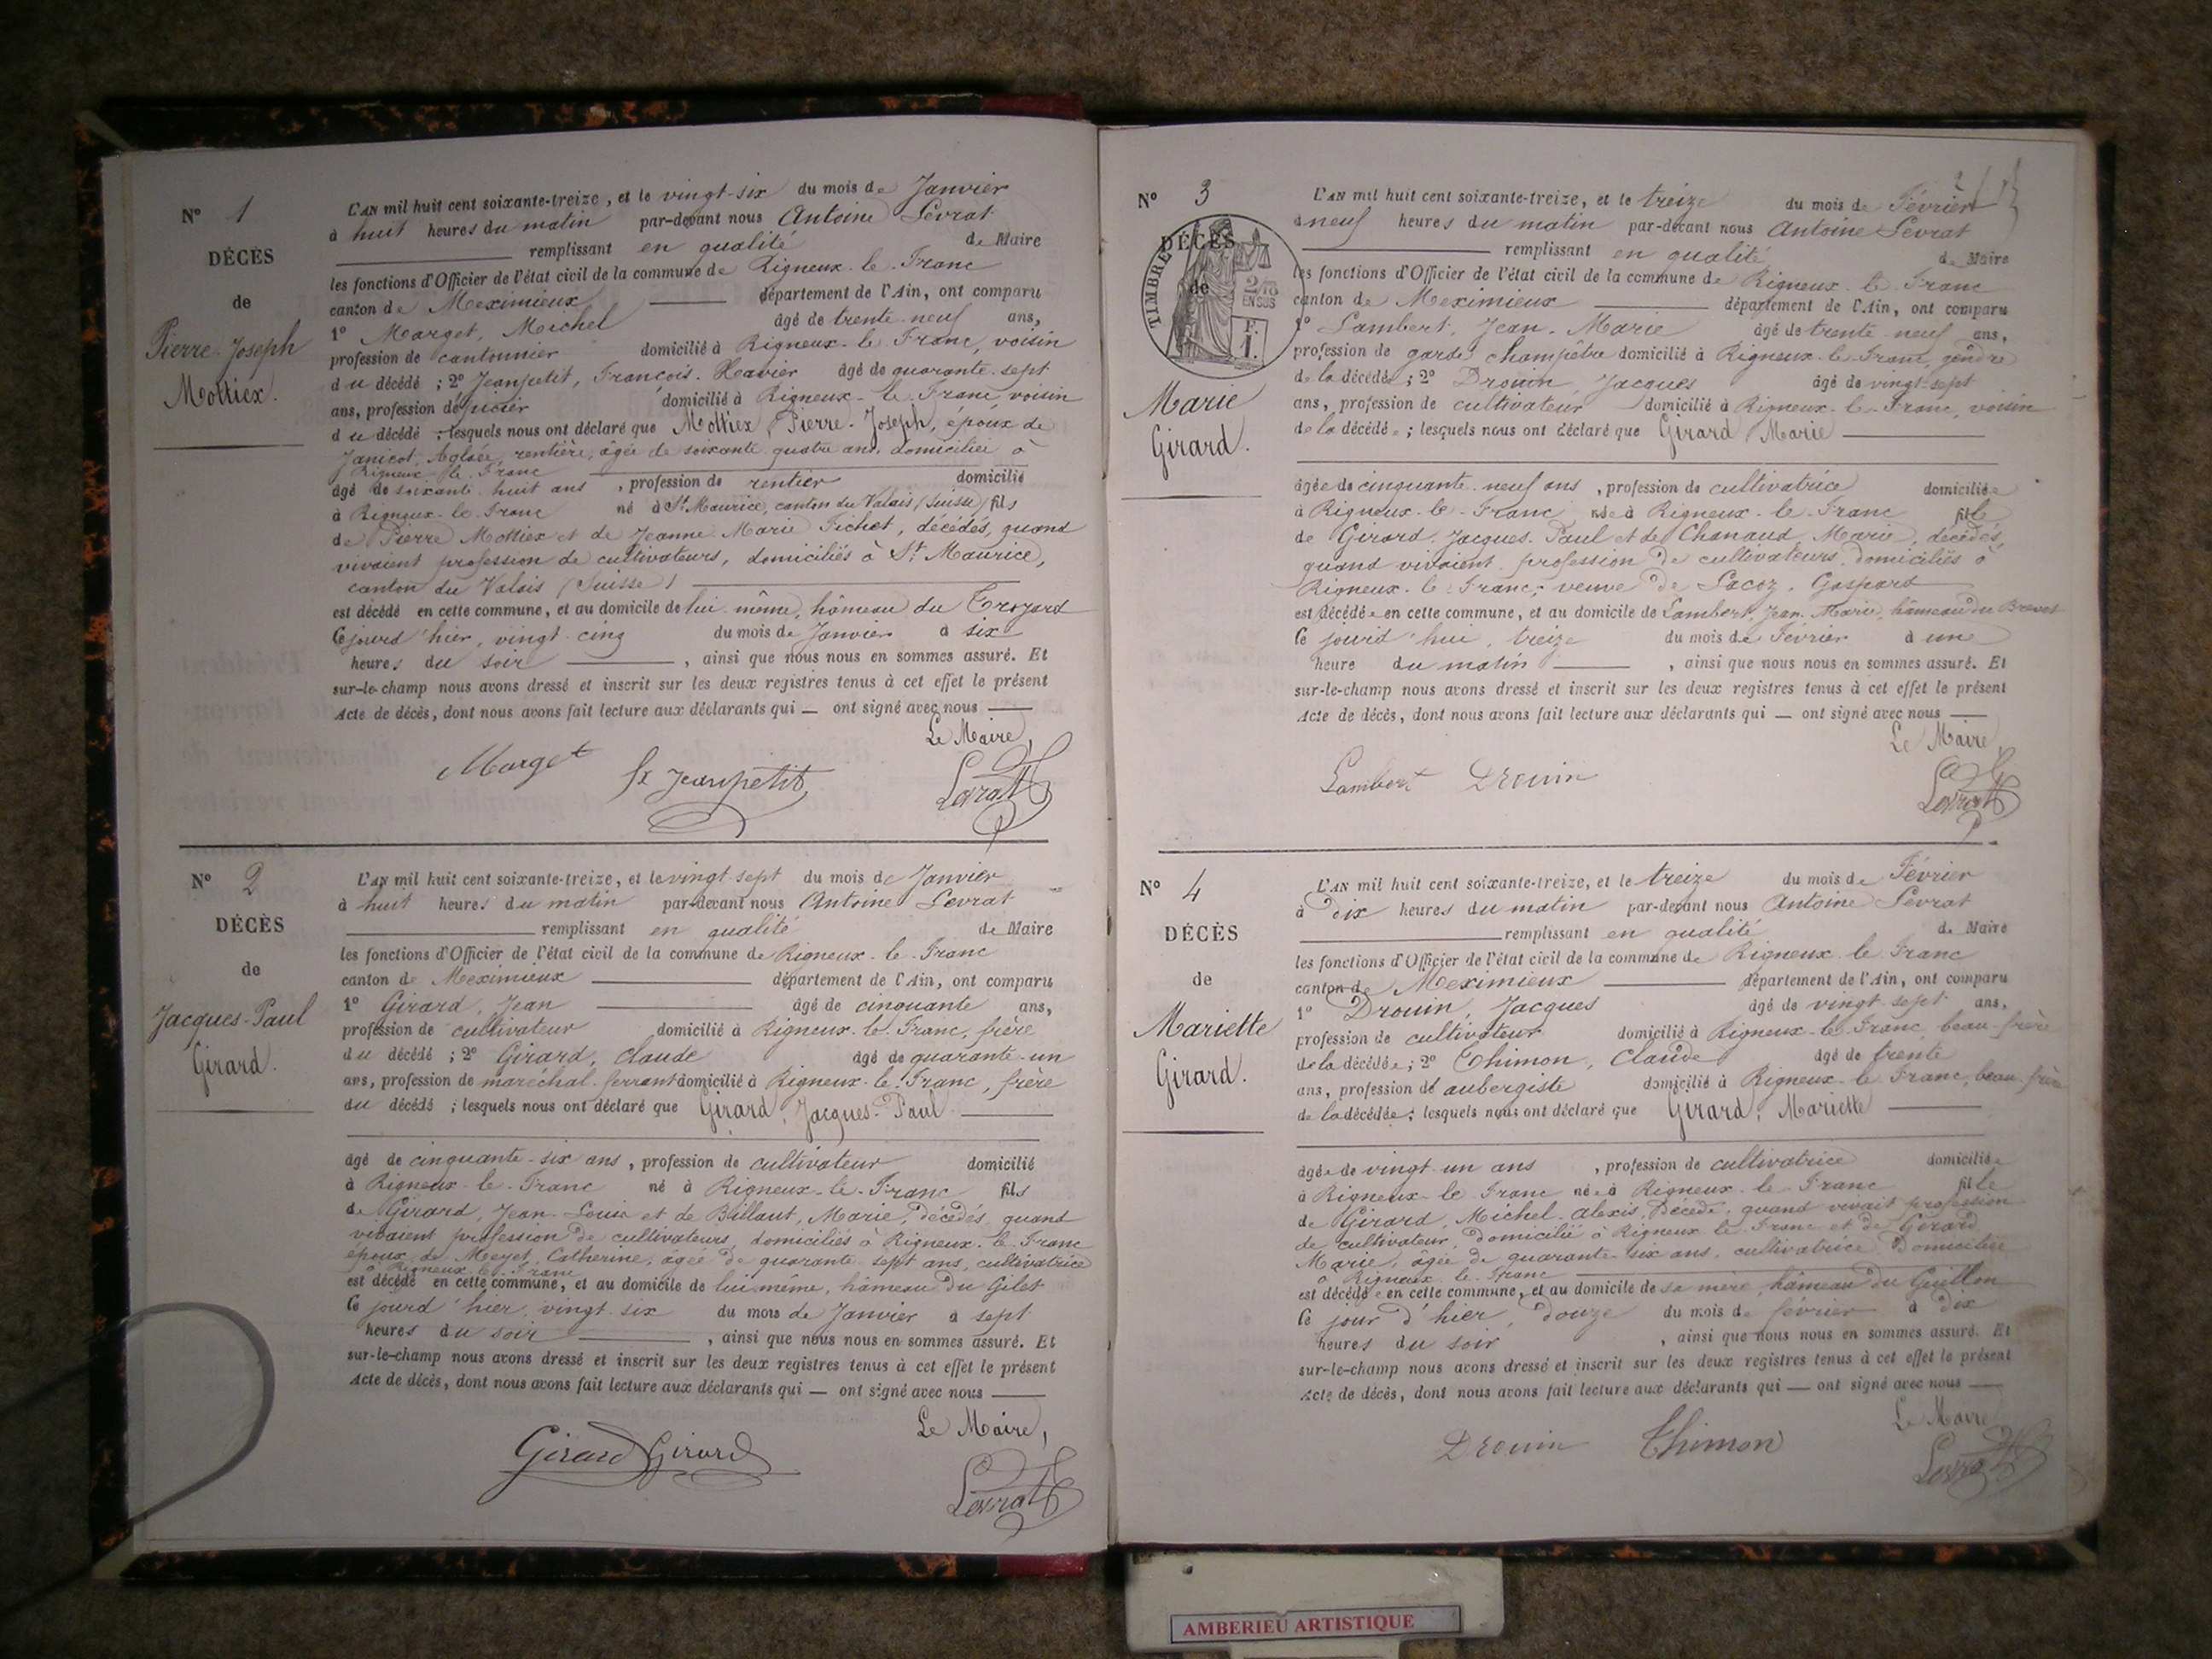 N° 1
DÉCÈS
de
Pierre-Joseph
Mottiex.
L'AN mil huit cent soixante-treize, et le vingt-six du mois de Janvier
à huit heures du matin par-devant nous Antoine Levrat
remplissant en qualité de Maire
les fonctions d'Officier de l'état civil de la commune de Rigneux-le-Franc
canton de Meximieux département de l'Ain, ont comparu
1° Marget, Michel âgé de trente-neuf ans,
profession de cantonnier domicilié à Rigneux-le-Franc, voisin
du décédé ; 2° Jeanpetit, François-Xavier âgé de quarante-sept
ans, profession d'épicier domicilié à Rigneux-le-Franc, voisin
du décédé ; lesquels nous ont déclaré que Mottiex, Pierre-Joseph, époux de
Janicot, Aglaée, rentière, âgée de soixante quatre ans, domiciliée à
Rigneux-le-Franc
âgé de soixante-huit ans, profession de rentier domicilié
à Rigneux-le-Franc né à St Maurice, canton du Valais (Suisse) fils
de Pierre Mottiex et de Jeanne-Marie Pichot, décédés, quand
vivaient profession de cultivateurs, domiciliés à St Maurice,
canton du Valais (Suisse)
est décédé en cette commune, et au domicile de lui-même, hâmeau du Trozard
Ce jourd'hier, vingt-cinq du mois de Janvier à six
heures du soir, ainsi que nous nous en sommes assuré. Et
sur-le-champ nous avons dressé et inscrit sur les deux registres tenus à cet effet le présent
Acte de décès, dont nous avons fait lecture aux déclarants qui — ont signé avec nous
Le Maire,
Marget fx Jeanpetit Levrat
N° 2
DÉCÈS
de
Jacques-Paul
Girard.
L'AN mil huit cent soixante-treize, et le vingt-sept du mois de Janvier
à huit heures du matin par-devant nous Antoine Levrat
remplissant en qualité de Maire
les fonctions d'Officier de l'état civil de la commune de Rigneux-le-Franc
canton de Meximieux département de l'Ain, ont comparu
1° Girard, Jean âgé de cinquante ans,
profession de cultivateur domicilié à Rigneux-le-Franc, frère
du décédé ; 2° Girard, Claude âgé de quarante-un
ans, profession de maréchal-ferrant domicilié à Rigneux-le-Franc, frère
du décédé ; lesquels nous ont déclaré que Girard, Jacques-Paul
âgé de cinquante-six ans, profession de cultivateur domicilié
à Rigneux-le-Franc né à Rigneux-le-Franc fils
de Girard, Jean-Louis et de Billaut, Marie, décédés, quand
vivaient profession de cultivateurs, domiciliés à Rigneux-le-Franc
époux de Meyet, Catherine, âgée de quarante-sept ans, cultivatrice
à Rigneux-le-Franc
est décédé en cette commune, et au domicile de lui-même, hâmeau du Gilet
Ce jourd'hier, vingt-six du mois de Janvier à sept
heures du soir, ainsi que nous nous en sommes assuré. Et
sur-le-champ nous avons dressé et inscrit sur les deux registres tenus à cet effet le présent
Acte de décès, dont nous avons fait lecture aux déclarants qui — ont signé avec nous
Le Maire,
Girard Girard Levrat
N° 3
DÉCÈS
de
TIMBRE
2/10
EN SUS
F.
1.
Marie
Girard.
L'AN mil huit cent soixante-treize, et le treize du mois de Février
à neuf heures du matin par-devant nous Antoine Levrat
remplissant en qualité de Maire
les fonctions d'Officier de l'état civil de la commune de Rigneux-le-Franc
canton de Meximieux département de l'Ain, ont comparu
1° Lambert, Jean-Marie âgé de trente-neuf ans,
profession de garde champêtre domicilié à Rigneux-le-Franc, gendre
de la décédée ; 2° Drouin, Jacques âgé de vingt-sept
ans, profession de cultivateur domicilié à Rigneux-le-Franc, voisin
de la décédée ; lesquels nous ont déclaré que Girard Marie
âgée de cinquante-neuf ans, profession de cultivatrice domiciliée
à Rigneux-le-Franc née à Rigneux-le-Franc fille
de Girard, Jacques-Paul et de Chanaud, Marie, décédés,
quand vivaient profession de cultivateurs, domiciliés à
Rigneux-le-Franc, veuve de Lacoz, Gaspard
est décédée en cette commune, et au domicile de Lambert, Jean-Marie, hâmeau du Brevet
Ce jourd'hui, treize du mois de Février à une
heure du matin, ainsi que nous nous en sommes assuré. Et
sur-le-champ nous avons dressé et inscrit sur les deux registres tenus à cet effet le présent
Acte de décès, dont nous avons fait lecture aux déclarants qui — ont signé avec nous
Le Maire
Lambert Drouin Levrat
N° 4
DÉCÈS
de
Mariette
Girard.
L'AN mil huit cent soixante-treize, et le treize du mois de Février
à dix heures du matin par-devant nous Antoine Levrat
remplissant en qualité de Maire
les fonctions d'Officier de l'état civil de la commune de Rigneux-le-Franc
canton de Meximieux département de l'Ain, ont comparu
1° Drouin, Jacques âgé de vingt-sept ans,
profession de cultivateur domicilié à Rigneux-le-Franc, beau-frère
de la décédée ; 2° Thimon, Claude âgé de trente
ans, profession d'aubergiste domicilié à Rigneux-le-Franc, beau-frère
de la décédée ; lesquels nous ont déclaré que Girard, Mariette
âgée de vingt-un ans, profession de cultivatrice domiciliée
à Rigneux-le-Franc née à Rigneux-le-Franc fille
de Girard, Michel-Alexis, décédé, quand vivait profession
de cultivateur, domicilié à Rigneux-le-Franc et de Girard
Marie, âgée de quarante-six ans, cultivatrice, domiciliée
à Rigneux-le-Franc
est décédée en cette commune, et au domicile de sa mère, hâmeau du Guillon
Ce jour d'hier, douze du mois de février à dix
heures du soir, ainsi que nous nous en sommes assuré. Et
sur-le-champ nous avons dressé et inscrit sur les deux registres tenus à cet effet le présent
Acte de décès, dont nous avons fait lecture aux déclarants qui — ont signé avec nous
Le Maire
Drouin Thimon Levrat
AMBERIEU ARTISTIQUE